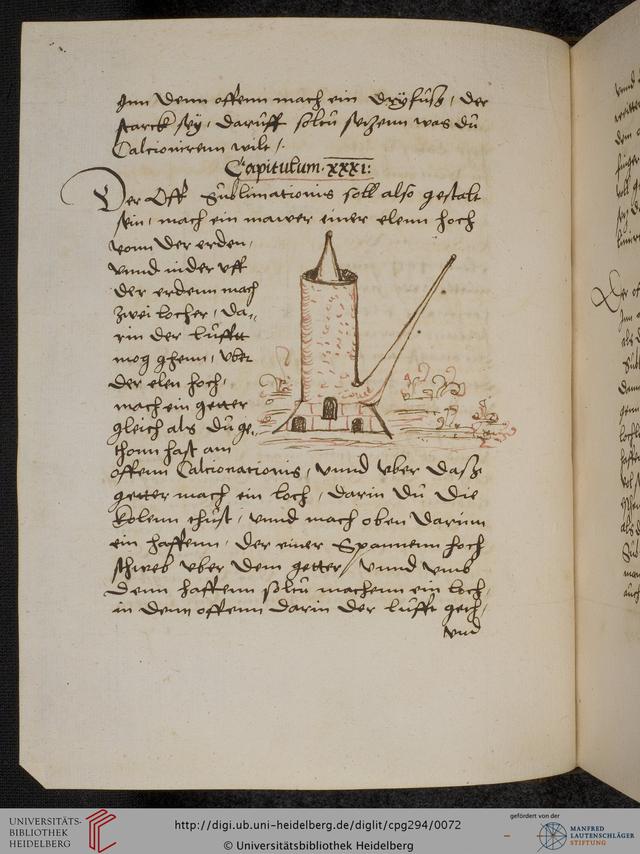 Inn denn offenn mach ein dryfusz, der
starck sey, daruff soltu setzenn was du
Calcionirenn wilt /.
Capitulum. xxxi:
Der Off Sublimationis soll also gestalt
sein, mach ein mawer einer elenn hoch
vonn der erden,
vnnd in der vff
der erdenn mach
zwei locher, da-
rin der lufftt
mog gehenn, vber
der elen hoch,
mach ein getter
gleich als du ge-
thonn hast am
offenn Calcionationis, vnnd vber dasz
getter mach ein loch, darin du die
kolenn thust, vnnd mach oben darinn
ein haffenn, der einer Spannenn hoch
schweb vber dem getter / vnnd vmb
denn haffenn soltu machenn ein loch,
in denn offenn darin der lufft geh,
vnd
UNIVERSITÄTS-
BIBLIOTHEK
HEIDELBERG
http://digi.ub.uni-heidelberg.de/diglit/cpg294/0072
© Universitätsbibliothek Heidelberg
gefördert von der
MANFRED
LAUTENSCHLÄGER
STIFTUNG